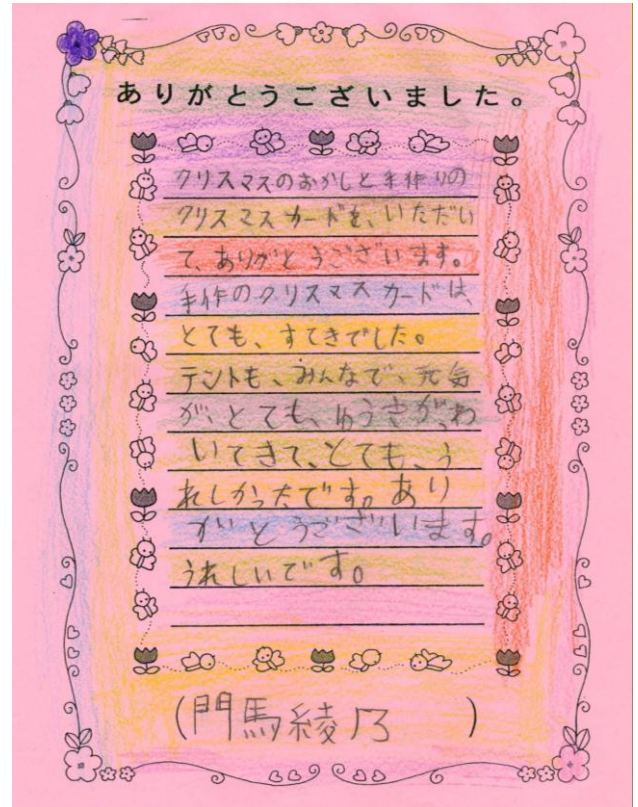 ありがとうございました。
クリスマスのおかしと手作りの
クリスマスカードを、いただい
て、ありがとうございます。
手作のクリスマスカードは、
とても、すてきでした。
テントも、みんなで、元気
が、とても、ゆうきが、わ
いてきて、とても、う
れしかったです。あり
がとうございます。
うれしいです。
(門馬綾乃)